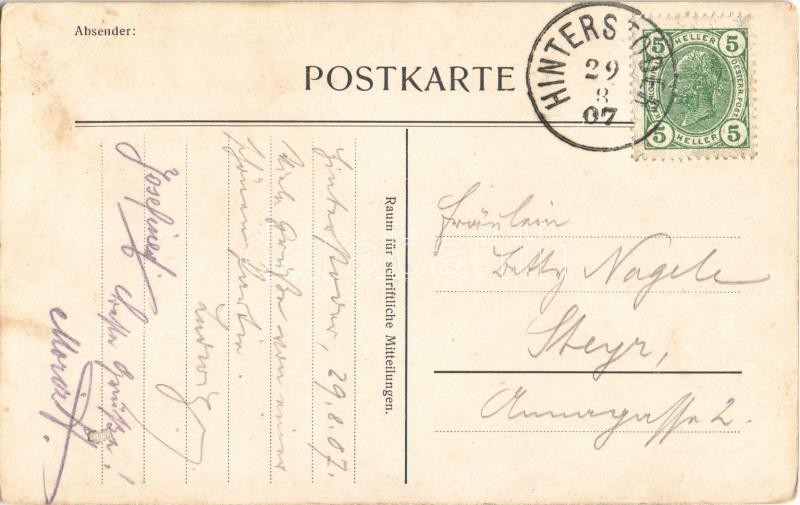 Absender:
POSTKARTE
HINTERSTODER
29
8
07
5 HELLER 5
5 HELLER 5
Raum für schriftliche Mitteilungen.
Hinterstoder, 29.8.07.
Viele Grüße von einer
schönen Partie.
Ludwig
Josefine
Grüße!
Fräulein
Betty Nagele
Steyr,
Annagasse 2.